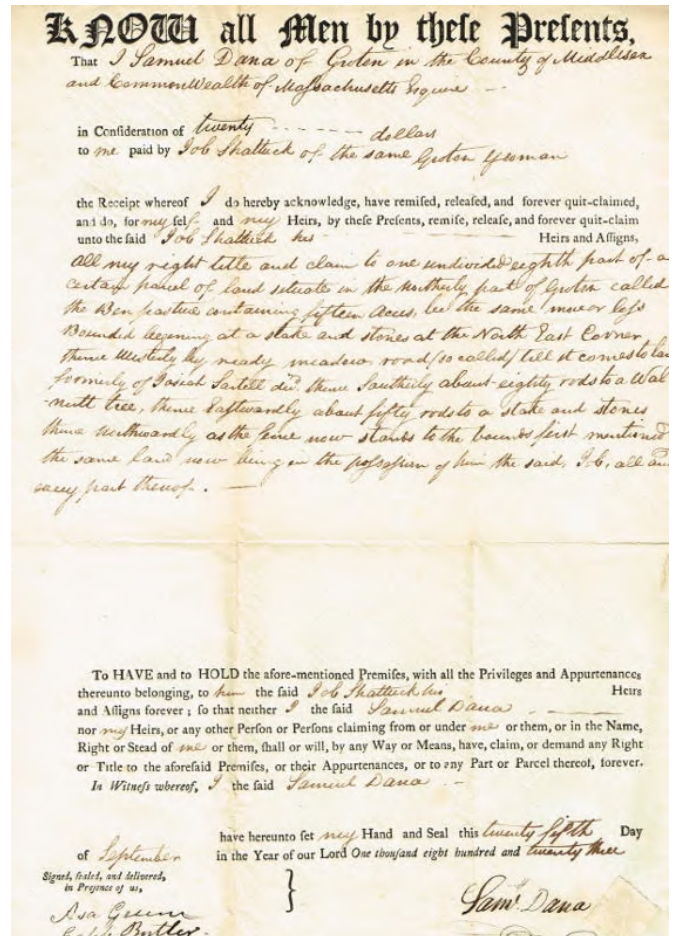 KNOW all Men by theſe Preſents,
That I Samuel Dana of Groton in the County of Middlesex
and CommonWealth of Maſsachusetts Esquire
in Conſideration of twenty - - - - - - dollars
to me paid by Job Shattuck of the same Groton Yeoman
the Receipt whereof I do hereby acknowledge, have remiſed, releaſed, and forever quit-claimed,
and do, for my ſelf and my Heirs, by theſe Preſents, remiſe, releaſe, and forever quit-claim
unto the ſaid Job Shattuck his Heirs and Aſſigns,
all my right title and claim to one undivided eighth part of a
certain parcel of land situate in the Northerly part of Groton called
the pasture containing fifteen acres, be the same more or leſs
Bounded begening at a stake and stones at the North East Corner
thence Westerly by meadow road /so called/ till it comes to
formerly of Josiah Sartell thence Southerly about eighty rods to a Wal
-nutt tree, thence Eastwardly about fifty rods to a stake and stones
thence Northwardly as the fence now stands to the bounds first mentioned
the same land now being in the poſseſsion of him the said, all
every part thereof. —
To HAVE and to HOLD the afore-mentioned Premiſes, with all the Privileges and Appurtenances
thereunto belonging, to him the ſaid Job Shattuck his Heirs
and Aſſigns forever; ſo that neither I the ſaid Samuel Dana
nor my Heirs, or any other Perſon or Perſons claiming from or under me or them, or in the Name,
Right or Stead of me or them, ſhall or will, by any Way or Means, have, claim, or demand any Right
or Title to the aforeſaid Premiſes, or their Appurtenances, or to any Part or Parcel thereof, forever.
In Witneſs whereof, I the ſaid Samuel Dana
have hereunto ſet my Hand and Seal this twenty fifth Day
of September in the Year of our Lord One thouſand eight hundred and twenty three
Signed, ſealed, and delivered,
in Preſence of us,
Sam^l. Dana
Asa
Butler.